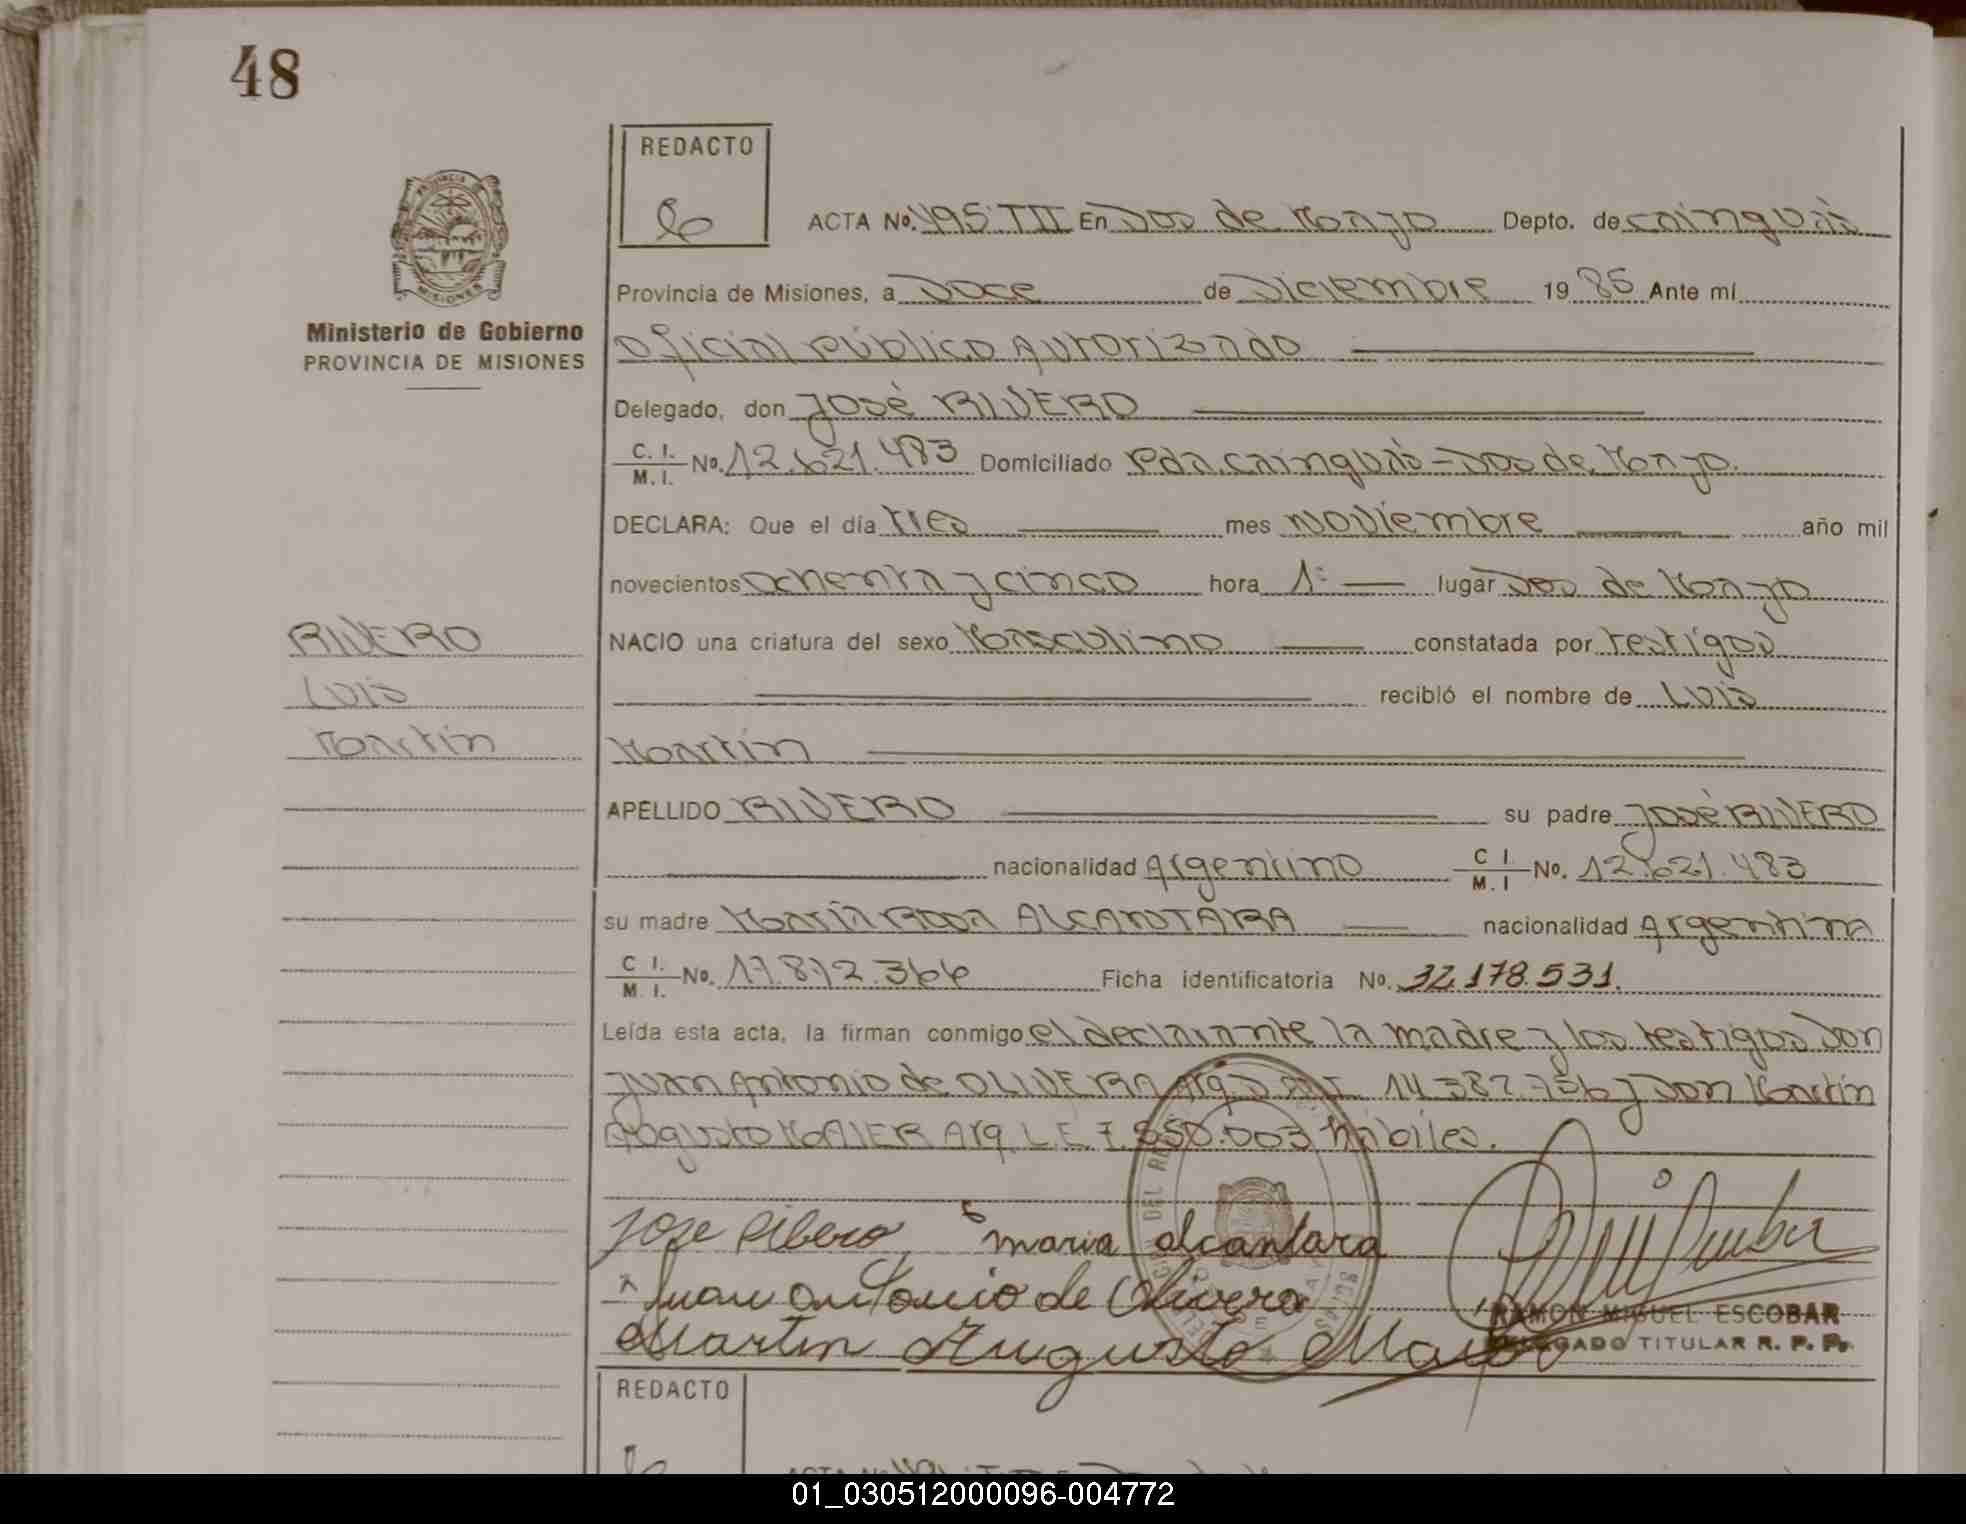 48
REDACTO
ACTA No. 495 TIII En Dos de Mayo Depto. de Cainguás
PROVINCIA
MISIONES
Ministerio de Gobierno
PROVINCIA DE MISIONES
Provincia de Misiones, a Doce de Diciembre 19 85 Ante mí
Oficial Público Autorizado
Delegado, don José RIVERO
C. I. M. I. No. 12.621.483 Domiciliado Pda. Cainguás - Dos de Mayo.
DECLARA: Que el día tres mes Noviembre año mil
novecientos ochenta y cinco hora 1: lugar Dos de Mayo
RIVERO
Luis
Martín
NACIO una criatura del sexo Masculino constatada por testigos
recibió el nombre de Luis
Martín
APELLIDO RIVERO su padre José RIVERO
nacionalidad Argentino C I. M. I No. 12.621.483
su madre María Rosa ALCANTARA nacionalidad Argentina
C I. M. I. No. 17.812.366 Ficha identificatoria No. 32.178.531.
Leída esta acta, la firman conmigo el declarante la madre y los testigos Don
Juan Antonio de OLIVERA Arg. D.N.I. 14.387.756 y Don Martín
Augusto MAIER Arg. L.E. 7.550.003 hábiles.
Jose Ribero maria alcantara
Juan antonio de Olivera
Martin Augusto Maier
RAMON MIGUEL ESCOBAR
DELEGADO TITULAR R. P. P.
REDACTO
01_030512000096-004772